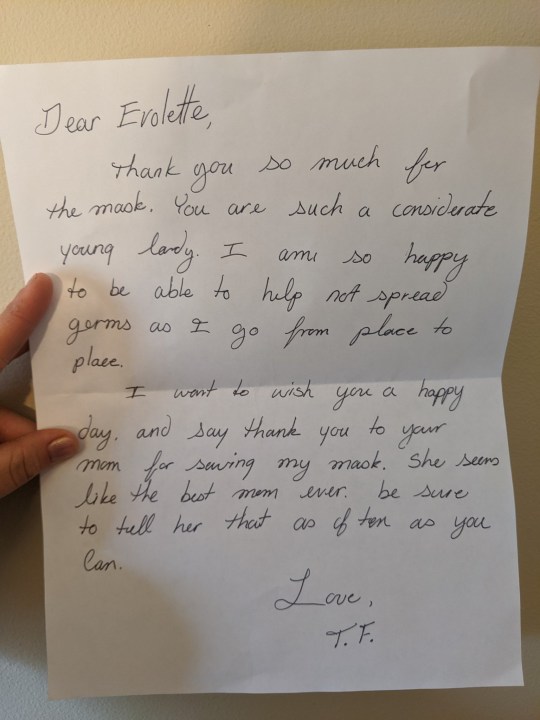 Dear Evolette,
Thank you so much for
the mask. You are such a considerate
young lady. I am so happy
to be able to help not spread
germs as I go from place to
place.
I want to wish you a happy
day. and say thank you to your
mom for sewing my mask. She seems
like the best mom ever. be sure
to tell her that as often as you
Can.
Love,
T.F.